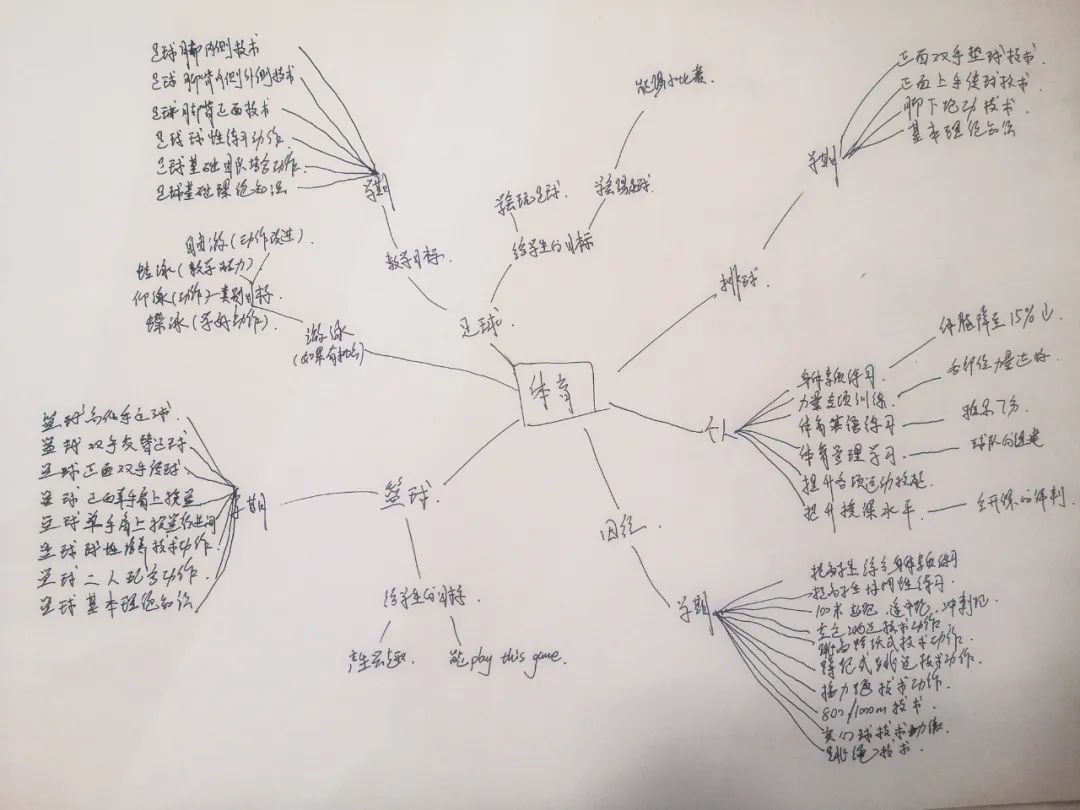 足球脚内侧技术
足球脚背内侧外侧技术
足球脚背正面技术
足球球性练习动作
足球基础团队配合动作
足球基础理论知识
学期
教学目标
足球
给学生的目标
学会玩足球
学会踢足球
能踢小比赛
自由游(动作改进)
蛙泳(教学能力)
仰泳(动作一类别目标
蝶泳(学好动作)
游泳
(如果有机会)
体育
排球
学期
正面双手垫球技术
正面上手传球技术
脚下跑动技术
基本理论知识
个人
身体素质练习
力量专项训练
体育英语练习
体育管理学习
提升各项运动技能
提升授课水平
体脂降至15%以
各部位力量达标
雅思7分
球队的组建
公开课的评判
篮球
学期
篮球高低手运球
篮球双手交替运球
篮球正面双手传球
篮球正面单手肩上投篮
篮球单手肩上投篮
篮球球性培养技术动作
篮球二人配合动作
篮球基本理论知识
给学生的目标
产生兴趣
能play this game.
田径
学期
提高学生综合身体素质练习
提高学生柔韧性练习
100米起跑,途中跑,冲刺跑
立定跳远技术动作
跳高跨跃式技术动作
蹲踞式跳远技术动作
接力跑技术动作
800/1000m技术
实心球技术动作
跳绳技术